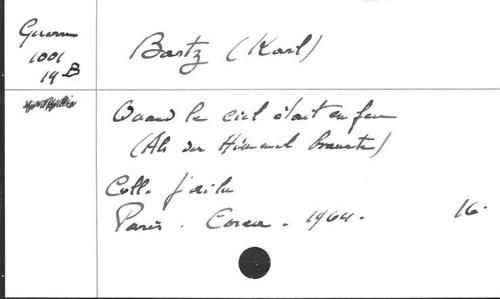 Guerre
1001
19 B
Bartz (Karl)
Quand le ciel était en feu
(Als der Himmel brannte)
Coll. J'ai lu
Paris. Correa. 1964.
16.